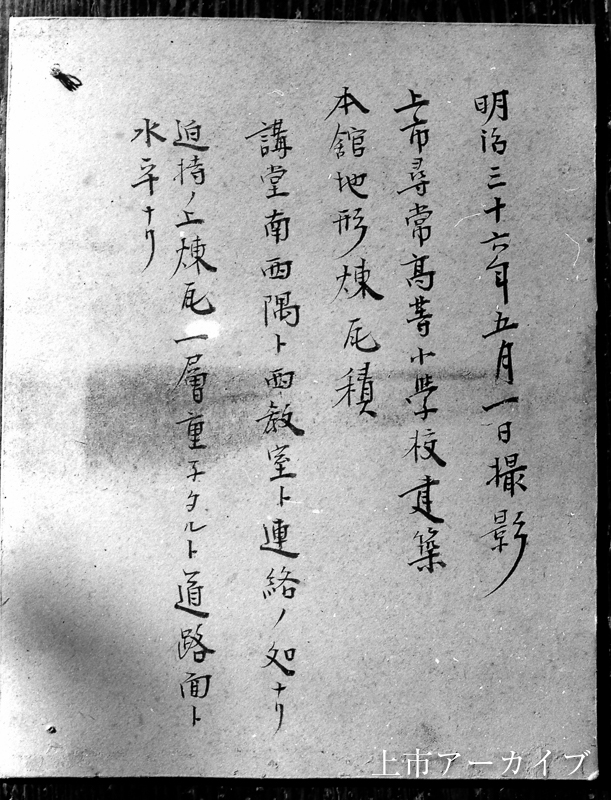 明治三十六年五月一日撮影
上市尋常高等小学校建築
本舘地形煉瓦積
講堂南西隅ト西教室ト連絡ノ処ナリ
迫持ノ上煉瓦一層重子タルト道路面ト
水平ナリ
上市アーカイブ